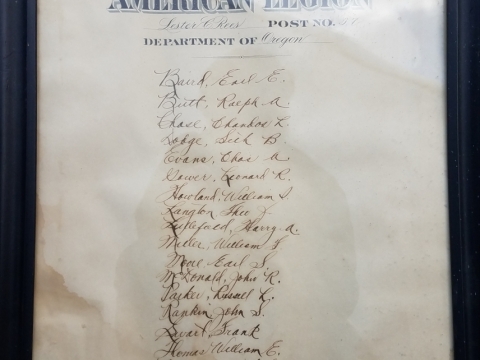 AMERICAN LEGION
Lester Rees POST NO.
DEPARTMENT OF Oregon
Baird, Earl E.
Butt, Ralph A.
Chase, Chandos L.
Dodge, B.
Evans, Chas A
Gower, Leonard R.
Howland, William S.
Langton Theo J.
Littlefield, Harry A.
Miller, William F.
More Earl S.
McDonald, John R.
Parker, Russel L.
Rankin, John S.
Frank
Thomas William E.